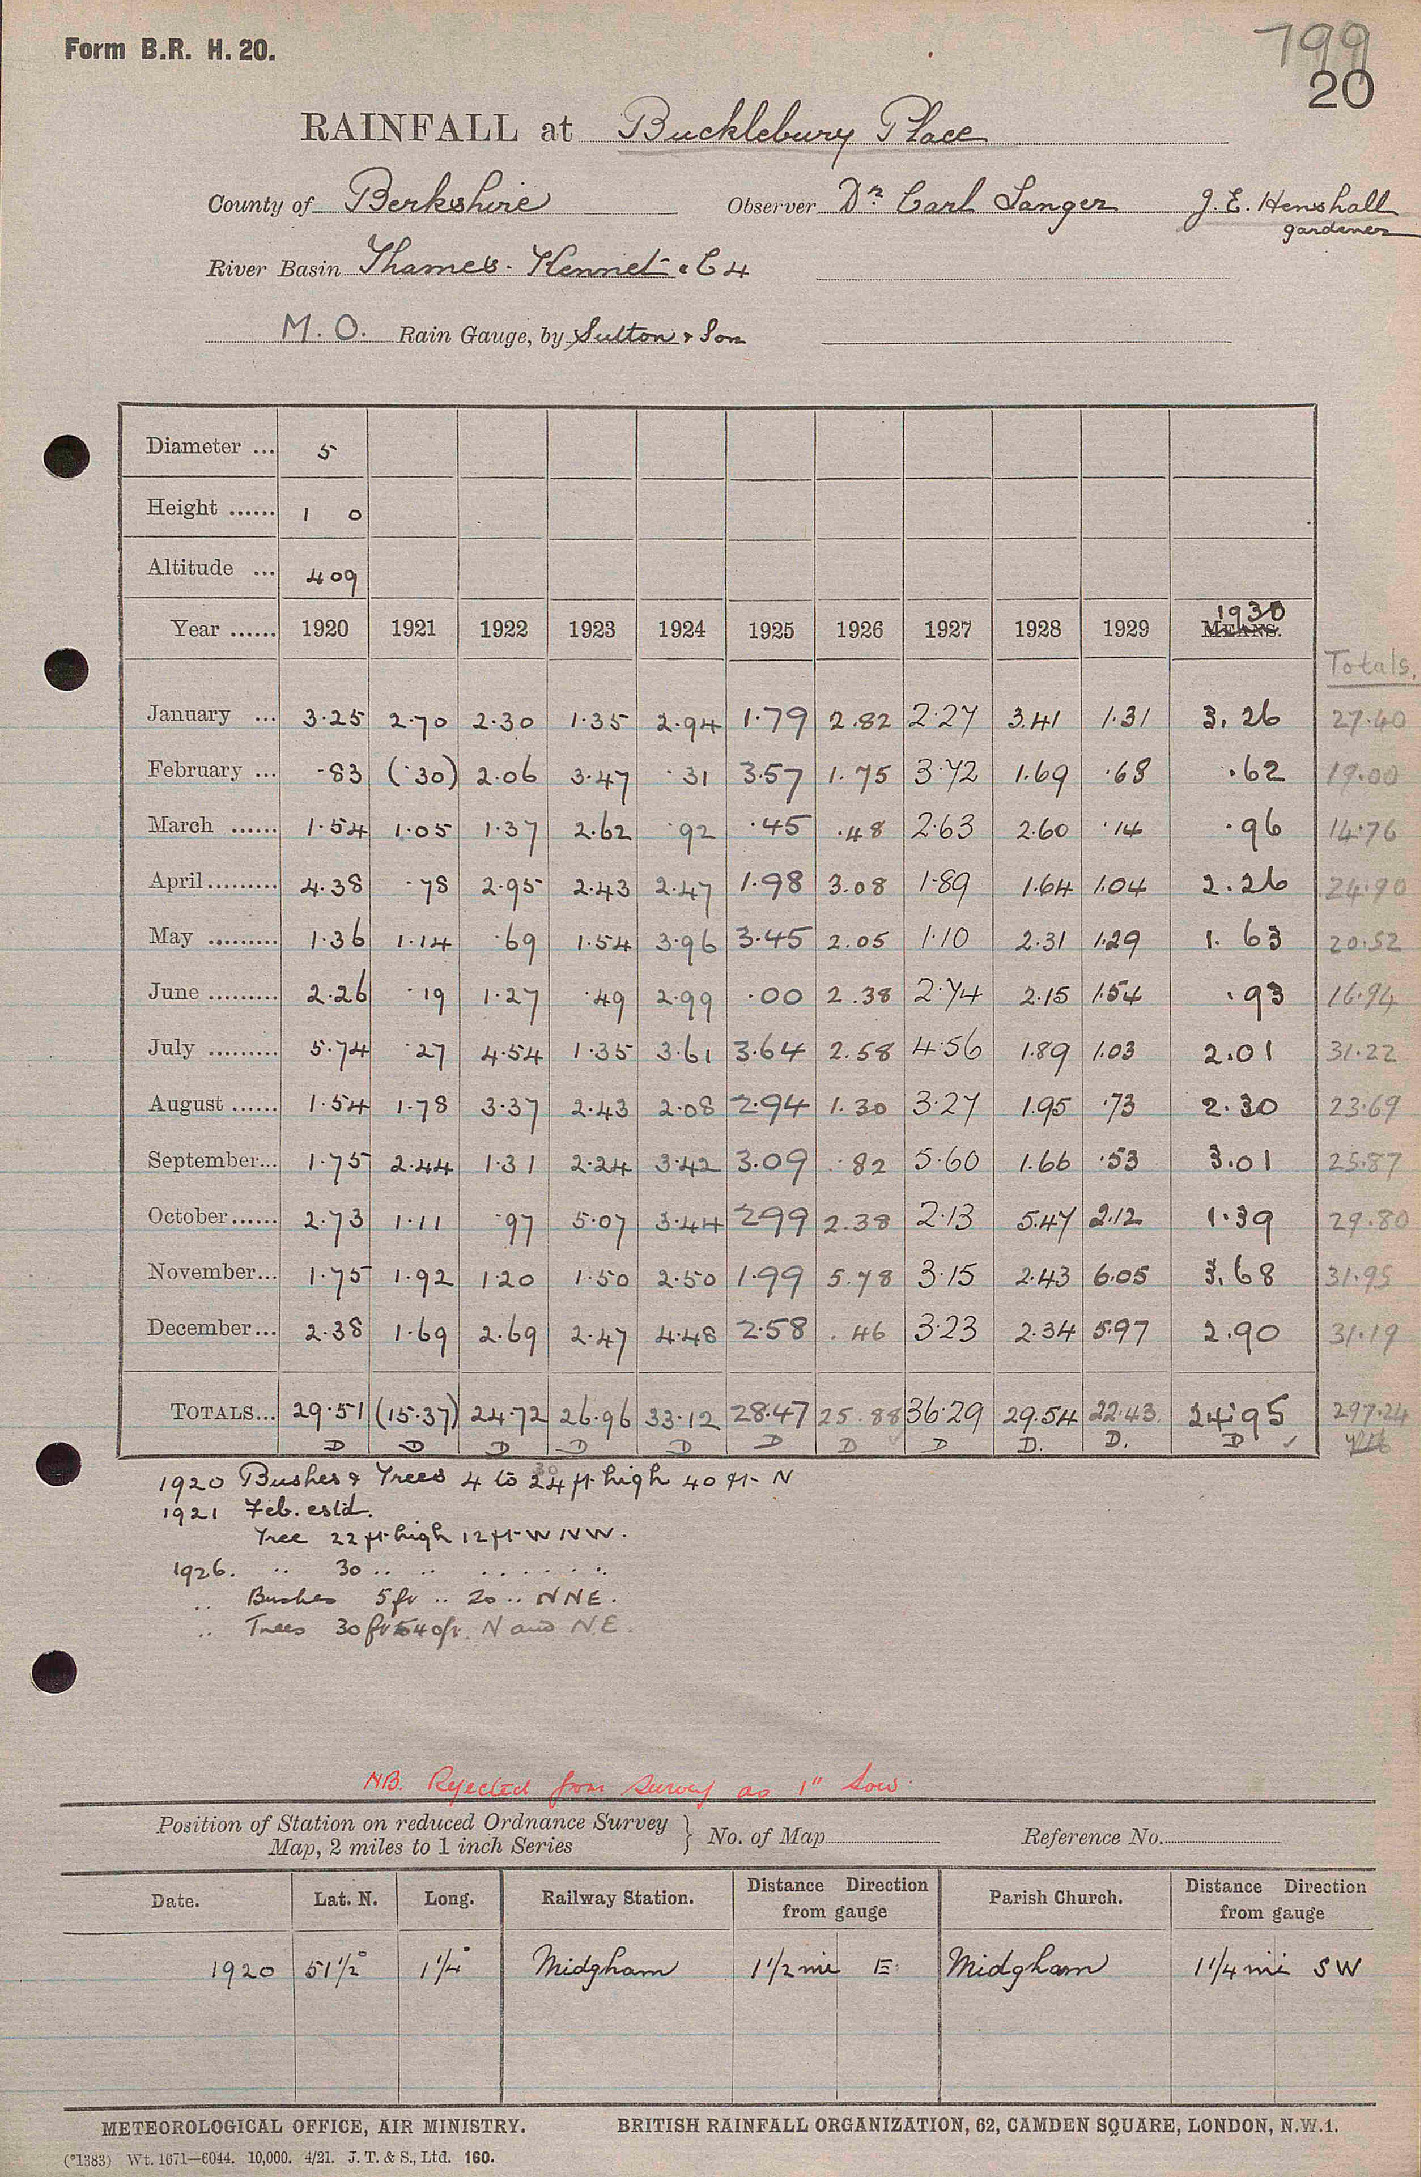 Form B.R. H. 20.
799
20
RAINFALL at Bucklebury Place
County of Berkshire Observer Dr. Carl Langer J. E. Henshall
gardener
River Basin Thames - Kennet . C4
M. O. Rain Gauge, by Sutton & Son
Diameter ... 5
Height ...... 1 0
Altitude ... 409
1930
Year ...... 1920 1921 1922 1923 1924 1925 1926 1927 1928 1929 MEANS.
Totals.
January ... 3.25 2.70 2.30 1.35 2.94 1.79 2.82 2.27 3.41 1.31 3.26 27.40
February ... .83 (.30) 2.06 3.47 .31 3.57 1.75 3.72 1.69 .68 .62 19.00
March ...... 1.54 1.05 1.37 2.62 .92 .45 .48 2.63 2.60 .14 .96 14.76
April ......... 4.38 .78 2.95 2.43 2.47 1.98 3.08 1.89 1.64 1.04 2.26 24.90
May ......... 1.36 1.14 .69 1.54 3.96 3.45 2.05 1.10 2.31 1.29 1.63 20.52
June ......... 2.26 .19 1.27 .49 2.99 .00 2.38 2.74 2.15 1.54 .93 16.94
July ......... 5.74 .27 4.54 1.35 3.61 3.64 2.58 4.56 1.89 1.03 2.01 31.22
August ...... 1.54 1.78 3.37 2.43 2.08 2.94 1.30 3.27 1.95 .73 2.30 23.69
September... 1.75 2.44 1.31 2.24 3.42 3.09 .82 5.60 1.66 .53 3.01 25.87
October...... 2.73 1.11 .97 5.07 3.44 2.99 2.38 2.13 5.47 2.12 1.39 29.80
November... 1.75 1.92 1.20 1.50 2.50 1.99 5.78 3.15 2.43 6.05 3.68 31.95
December... 2.38 1.69 2.69 2.47 4.48 2.58 .46 3.23 2.34 5.97 2.90 31.19
TOTALS... 29.51 (15.37) 24.72 26.96 33.12 28.47 25.88 36.29 29.54 22.43 24.95 297.24
D D D D D D D D D. D. D ✓
1920 Bushes & Trees 4 to 24 ft high 40 ft N
1921 Feb. estd.
Tree 22 ft high 12 ft W NW.
1926. .. 30 .. .. .. .. .. ..
.. Bushes 5 ft .. 20 .. NNE.
.. Trees 30 ft to 40 ft. N and N.E.
NB. Rejected from survey as 1" low.
Position of Station on reduced Ordnance Survey
Map, 2 miles to 1 inch Series } No. of Map Reference No.
Date. Lat. N. Long. Railway Station. Distance Direction from gauge Parish Church. Distance Direction from gauge
1920 51½° 1¼° Midgham 1½ mi E. Midgham 1¼ mi SW
METEOROLOGICAL OFFICE, AIR MINISTRY. BRITISH RAINFALL ORGANIZATION, 62, CAMDEN SQUARE, LONDON, N.W.1.
(*1383) Wt. 1671—6044. 10,000. 4/21. J. T. & S., Ltd. 160.